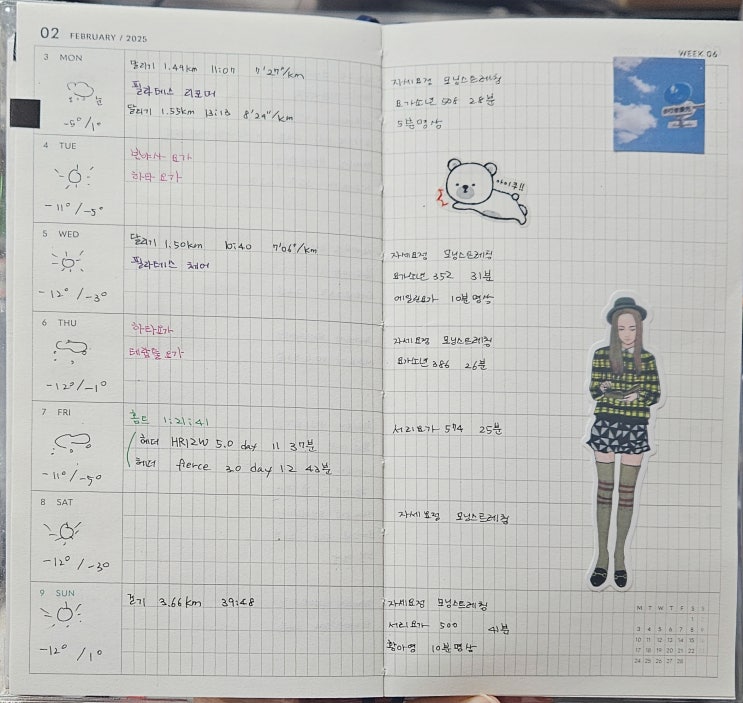 02 FEBRUARY / 2025
3 MON
-5°/1°
달리기 1.49km 11:07 7'27"/km
필라테스 리포머
달리기 1.55km 13:13 8'29"/km
4 TUE
-11°/-5°
빈야사 요가
하타 요가
5 WED
-12°/-3°
달리기 1.50km 10:40 7'06"/km
필라테스 체어
6 THU
-12°/-1°
하타요가
테라피 요가
7 FRI
-11°/-5°
홈트 1:21:41
헤더 HR12W 5.0 day 11 37분
헤더 fierce 3.0 day 12 43분
8 SAT
-12°/-3°
9 SUN
-12°/1°
걷기 3.66km 39:48
WEEK 06
자세요정 모닝스트레칭
요가소년 508 28분
5분명상
아이쿠!!
자세요정 모닝스트레칭
요가소년 352 31분
에일린요가 10분명상
자세요정 모닝스트레칭
요가소년 386 26분
서리요가 574 25분
자세요정 모닝스트레칭
자세요정 모닝스트레칭
서리요가 500 41분
황아영 10분명상
M T W T F S S
1 2
3 4 5 6 7 8 9
10 11 12 13 14 15 16
17 18 19 20 21 22 23
24 25 26 27 28